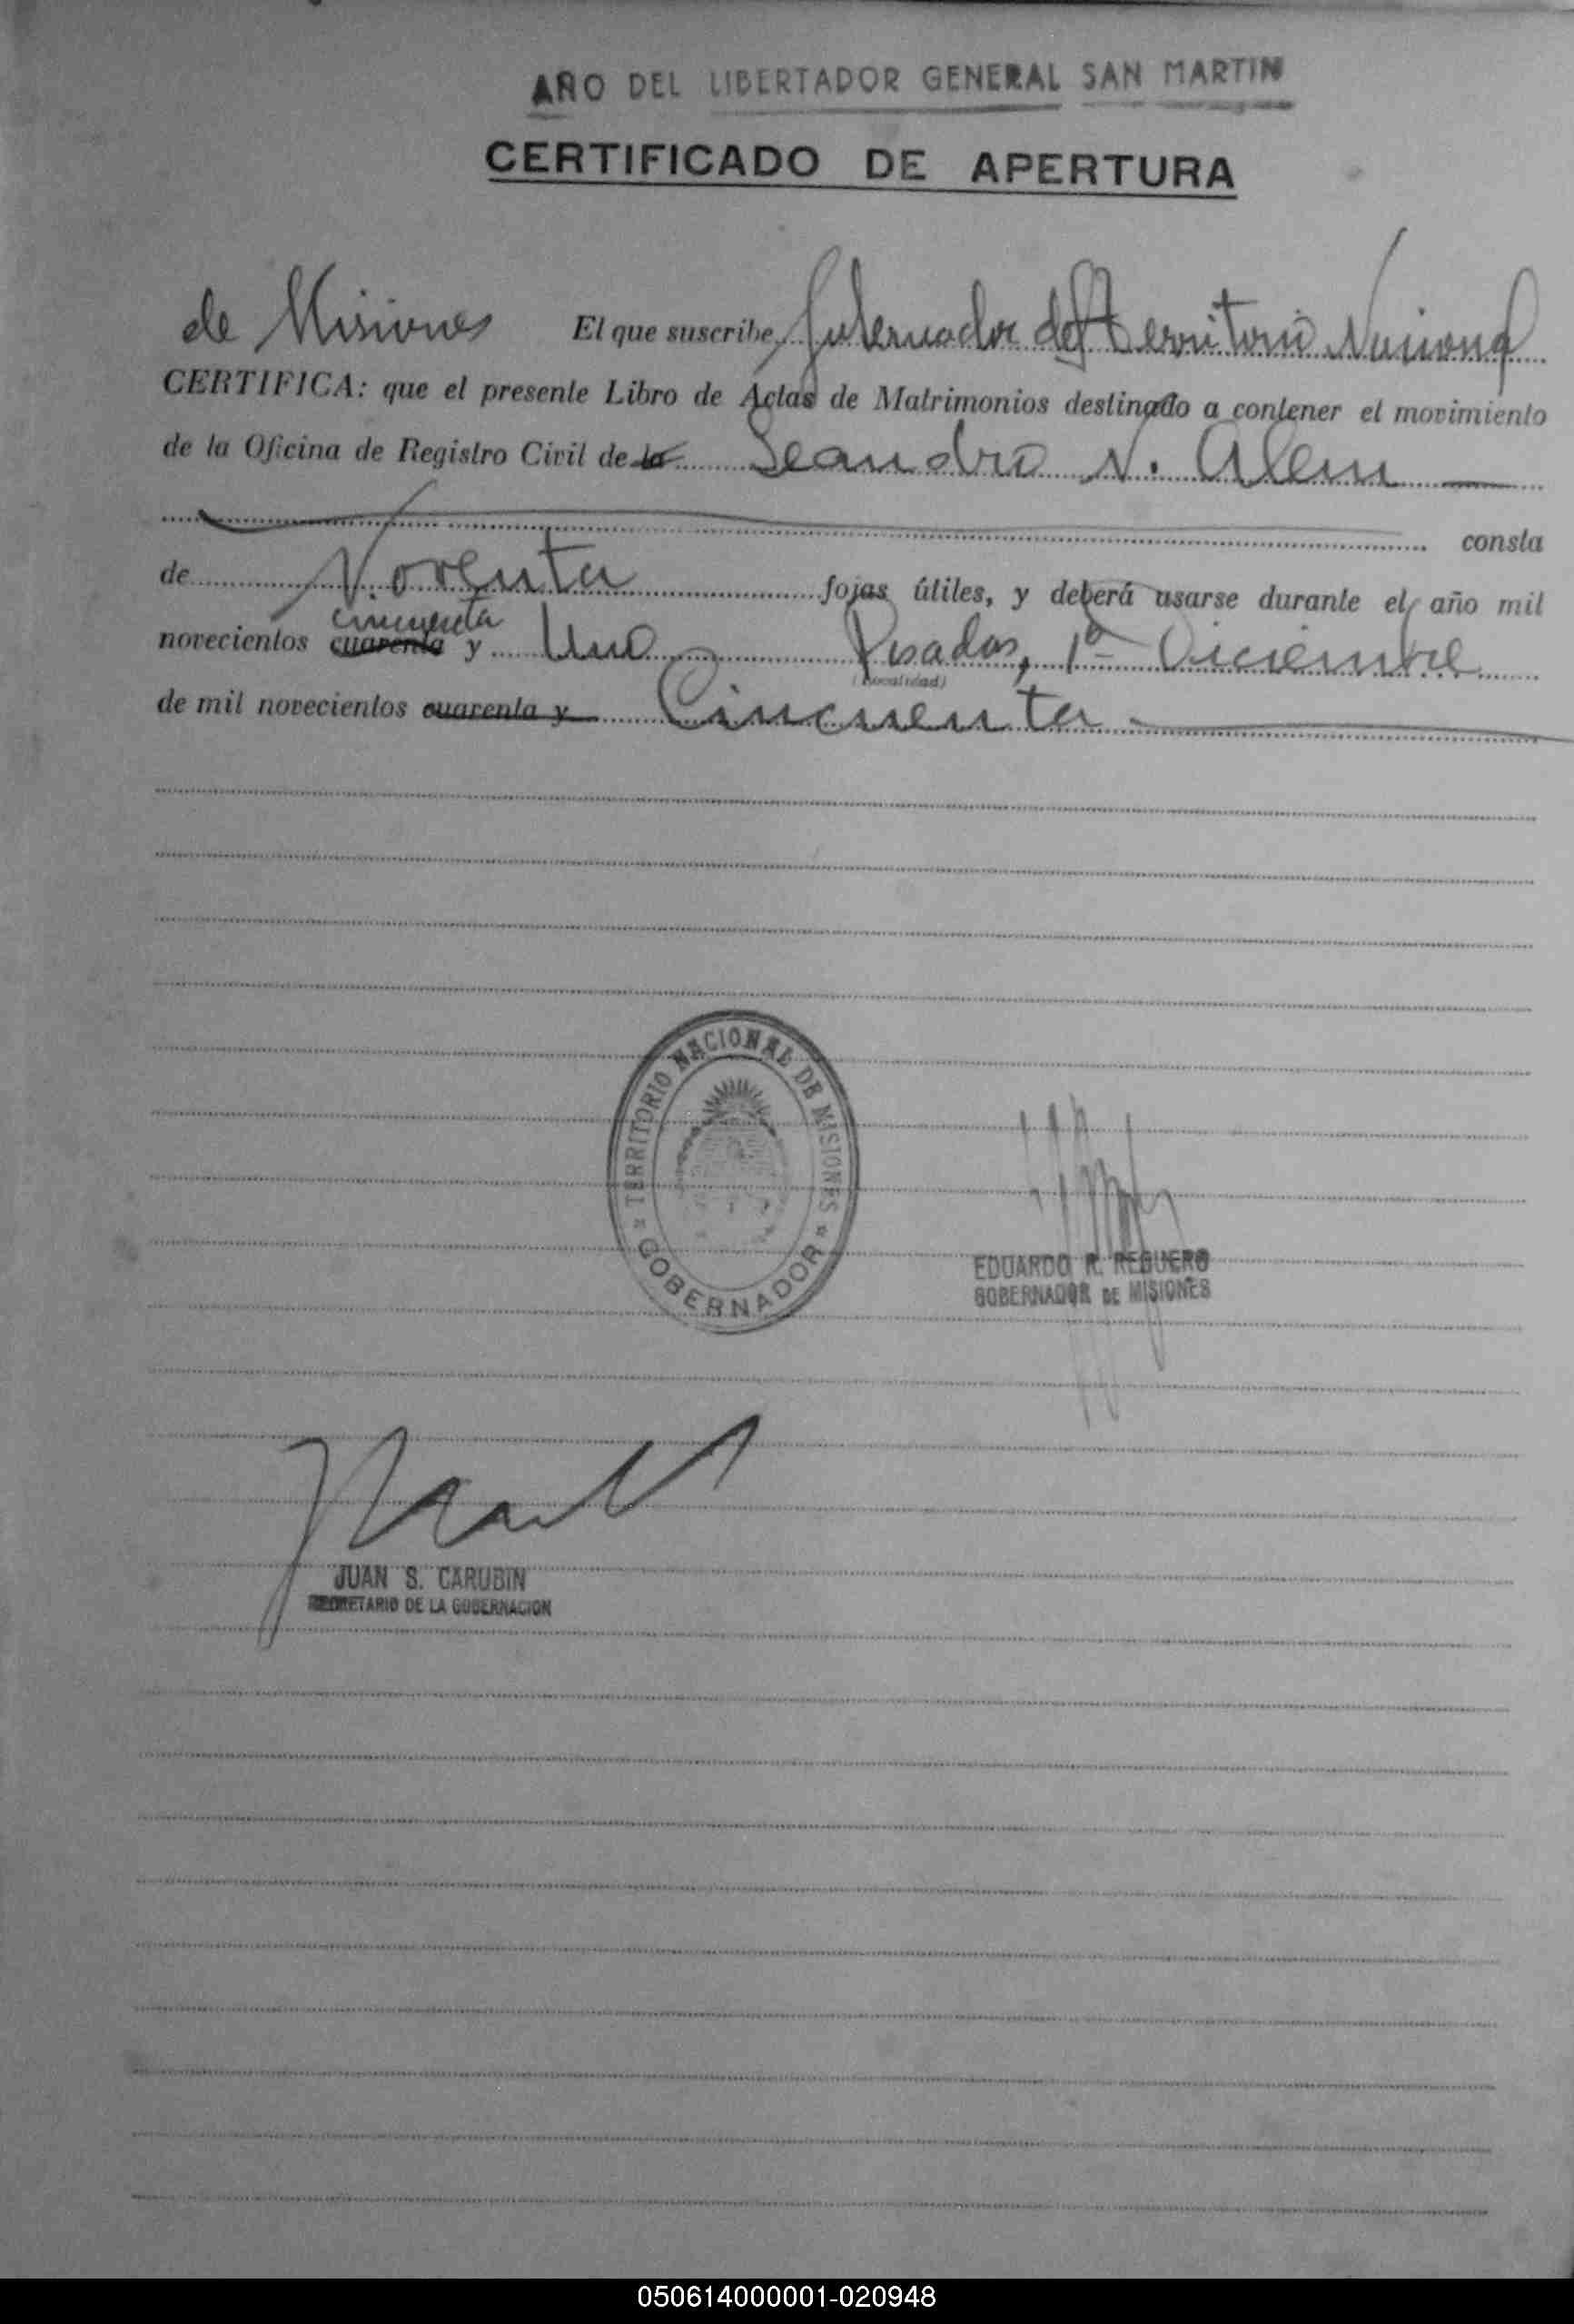 AÑO DEL LIBERTADOR GENERAL SAN MARTIN
CERTIFICADO DE APERTURA
El que suscribe, Gobernador del Territorio Nacional
de Misiones
CERTIFICA: que el presente Libro de Actas de Matrimonios destinado a contener el movimiento
de la Oficina de Registro Civil de la Leandro N. Alem
consta
de Noventa fojas útiles, y deberá usarse durante el año mil
cincuenta
novecientos cuarenta y Uno Posadas, 1º Diciembre
(Localidad)
de mil novecientos cuarenta y Cincuenta
TERRITORIO NACIONAL DE MISIONES
GOBERNADOR
EDUARDO R. REGUERO
GOBERNADOR DE MISIONES
JUAN S. CARUBIN
SECRETARIO DE LA GOBERNACION
050614000001-020948